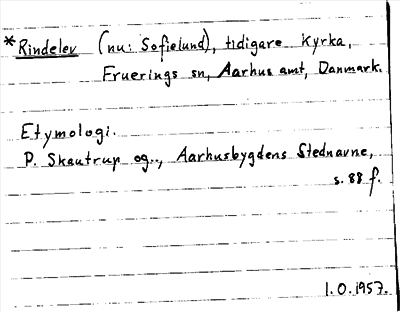 *Rindelev (nu: Sofielund), tidigare kyrka,
Fruerings sn, Aarhus amt, Danmark.
Etymologi.
P. Skautrup og.., Aarhusbygdens Stednavne,
s. 88 f.
1.0.1957.